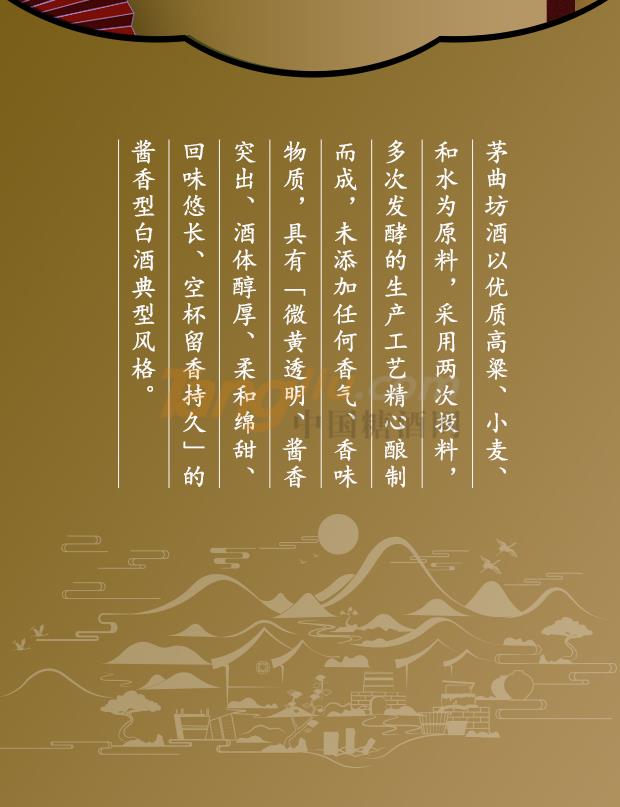 茅曲坊酒以优质高粱、小麦、
和水为原料，采用两次投料，
多次发酵的生产工艺精心酿制
而成，未添加任何香气、香味
物质，具有「微黄透明、酱香
突出、酒体醇厚、柔和绵甜、
回味悠长、空杯留香持久」的
酱香型白酒典型风格。
Tangjiu.com
中国糖酒网